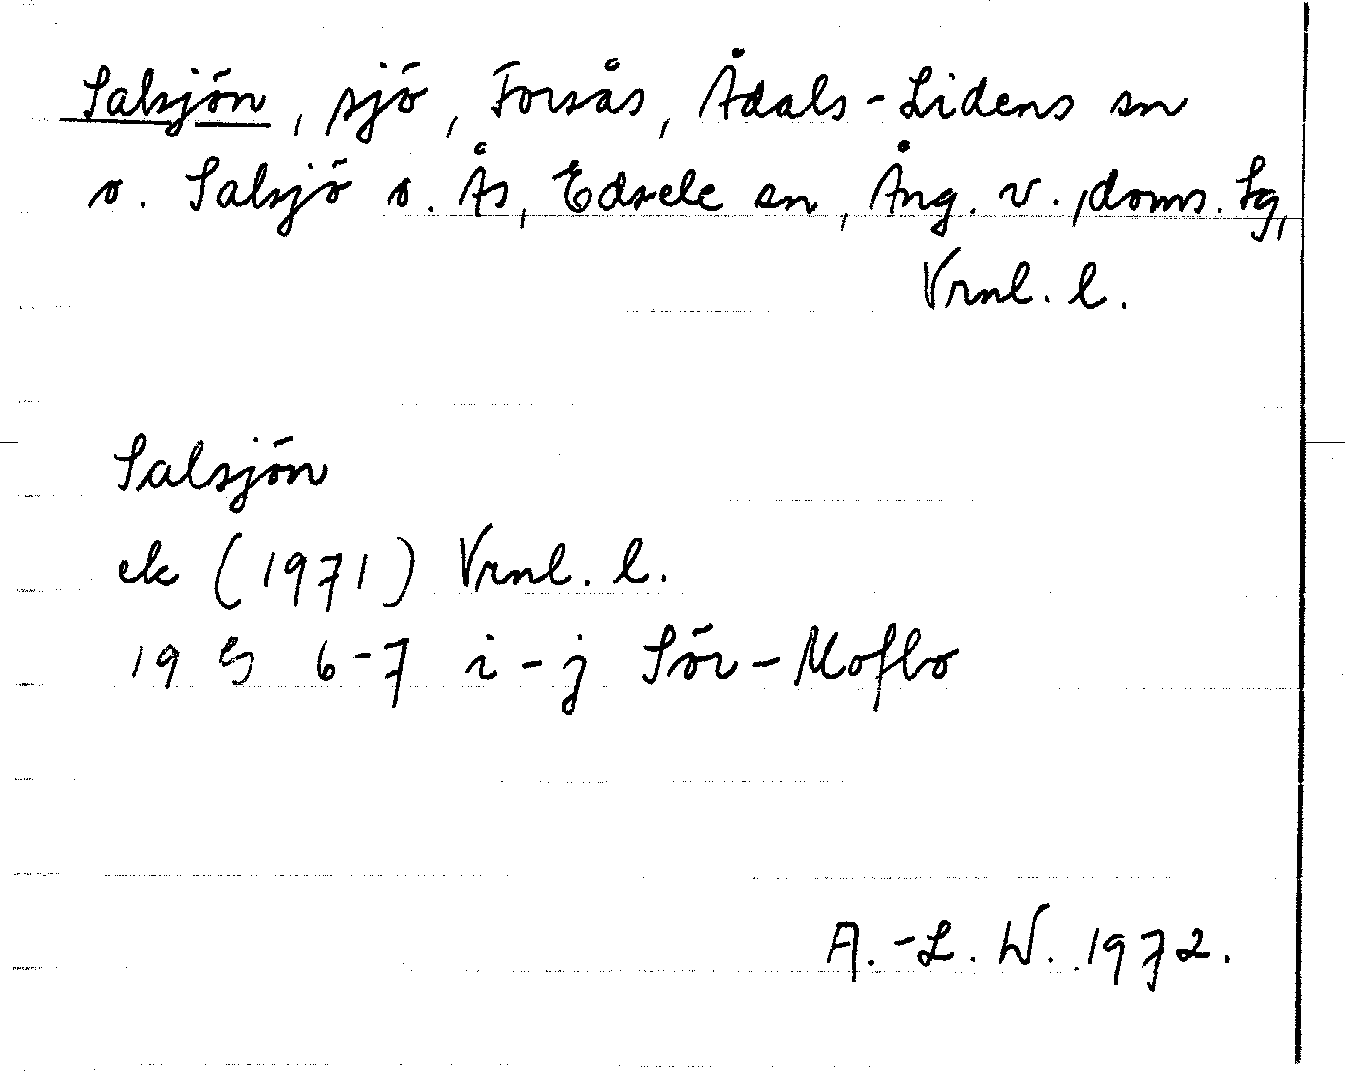 Salsjön, sjö, Forsås, Ådals-Lidens sn
o. Salsjö o. Ås, Edsele sn, Ång. v., doms. lg,
Vrnl. l.
Salsjön
ek (1971) Vrnl. l.
19 G 6-7 i-j Sör-Moflo
A.-L. W. 1972.